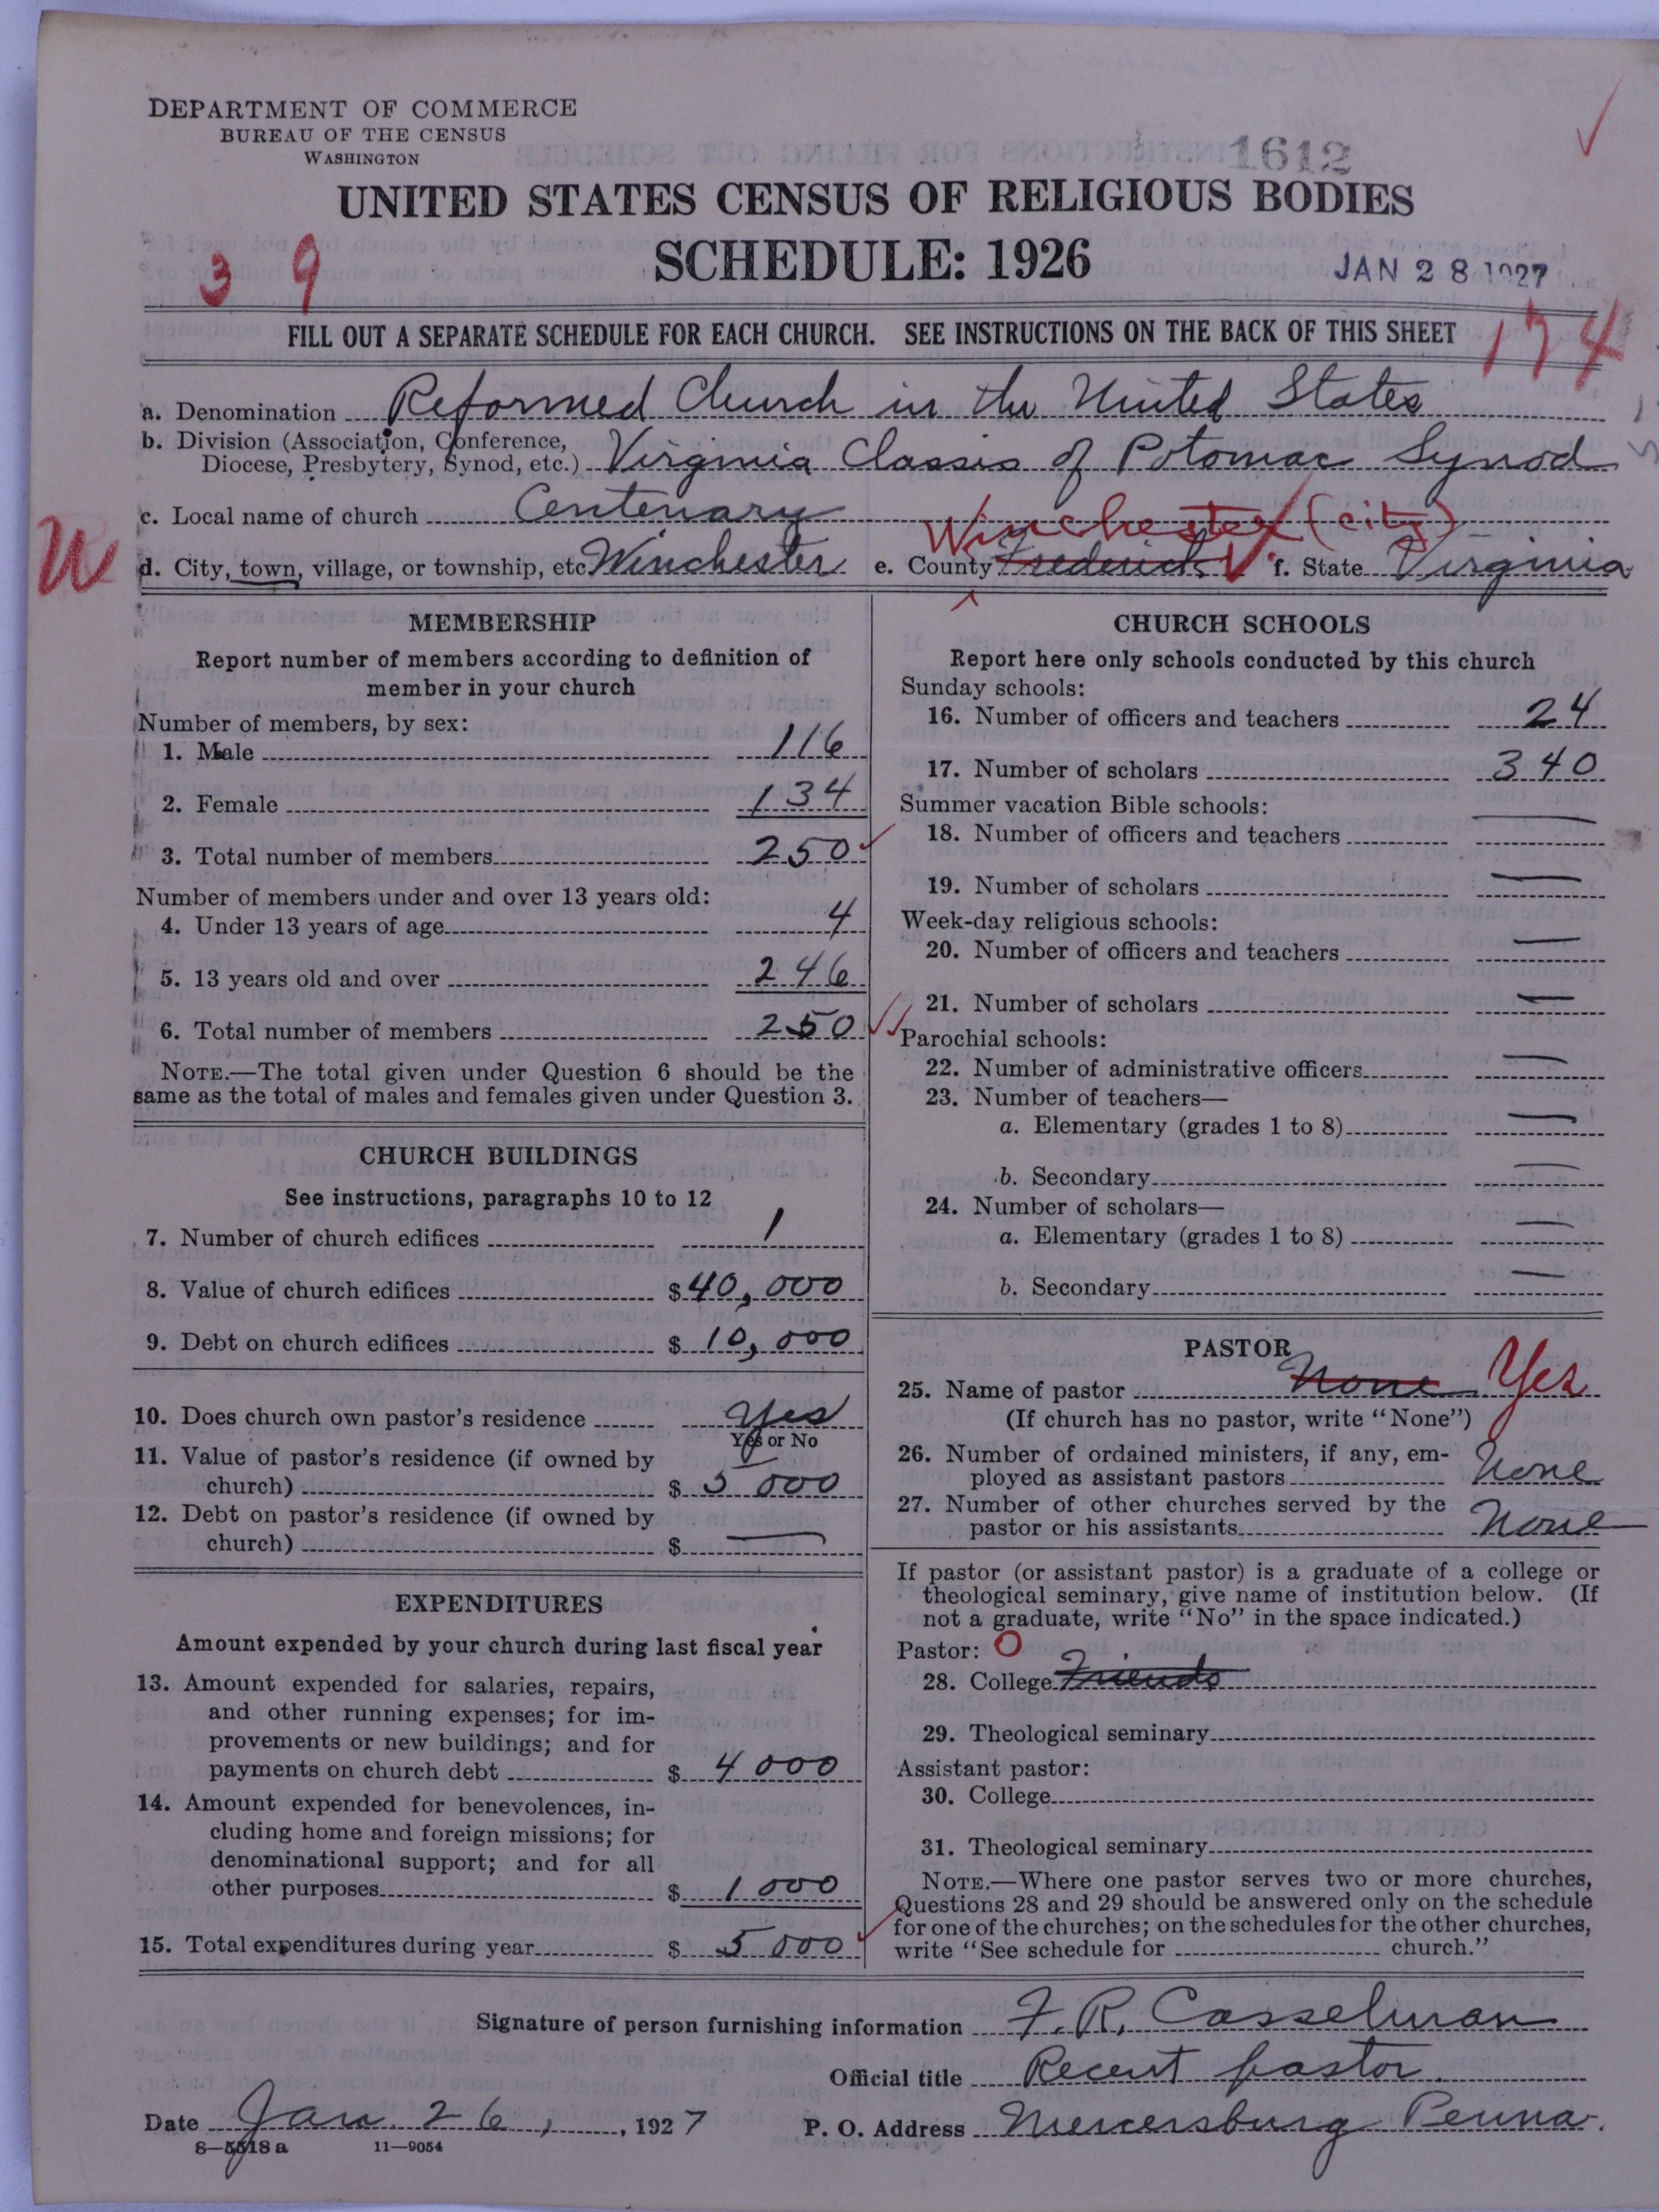 DEPARTMENT OF COMMERCE
BUREAU OF THE CENSUS
WASHINGTON
1612
UNITED STATES CENSUS OF RELIGIOUS BODIES
SCHEDULE: 1926
3 9
JAN 28 1927
FILL OUT A SEPARATE SCHEDULE FOR EACH CHURCH. SEE INSTRUCTIONS ON THE BACK OF THIS SHEET
174
a. Denomination Reformed Church in the United States
b. Division (Association, Conference,
Diocese, Presbytery, Synod, etc.) Virginia Classis of Potomac Synod
c. Local name of church Centenary
Winchester (city)
W
d. City, town, village, or township, etc. Winchester e. County Frederick V. f. State Virginia
MEMBERSHIP
Report number of members according to definition of
member in your church
Number of members, by sex:
1. Male 116
2. Female 134
3. Total number of members 250
Number of members under and over 13 years old:
4. Under 13 years of age 4
5. 13 years old and over 246
6. Total number of members 250
NOTE.—The total given under Question 6 should be the
same as the total of males and females given under Question 3.
CHURCH BUILDINGS
See instructions, paragraphs 10 to 12
7. Number of church edifices 1
8. Value of church edifices $40,000
9. Debt on church edifices $10,000
10. Does church own pastor's residence Yes
Yes or No
11. Value of pastor's residence (if owned by
church) $ 5 000
12. Debt on pastor's residence (if owned by
church) $ —
EXPENDITURES
Amount expended by your church during last fiscal year
13. Amount expended for salaries, repairs,
and other running expenses; for im-
provements or new buildings; and for
payments on church debt $ 4 000
14. Amount expended for benevolences, in-
cluding home and foreign missions; for
denominational support; and for all
other purposes $ 1 000
15. Total expenditures during year $ 5 000
CHURCH SCHOOLS
Report here only schools conducted by this church
Sunday schools:
16. Number of officers and teachers 24
17. Number of scholars 340
Summer vacation Bible schools:
18. Number of officers and teachers —
19. Number of scholars —
Week-day religious schools:
20. Number of officers and teachers —
21. Number of scholars —
Parochial schools:
22. Number of administrative officers —
23. Number of teachers—
a. Elementary (grades 1 to 8) —
b. Secondary —
24. Number of scholars—
a. Elementary (grades 1 to 8) —
b. Secondary —
PASTOR
25. Name of pastor None Yes
(If church has no pastor, write "None")
26. Number of ordained ministers, if any, em-
ployed as assistant pastors None
27. Number of other churches served by the
pastor or his assistants None
If pastor (or assistant pastor) is a graduate of a college or
theological seminary, give name of institution below. (If
not a graduate, write "No" in the space indicated.)
Pastor: O
28. College Friends
29. Theological seminary
Assistant pastor:
30. College
31. Theological seminary
NOTE.—Where one pastor serves two or more churches,
Questions 28 and 29 should be answered only on the schedule
for one of the churches; on the schedules for the other churches,
write "See schedule for church."
Signature of person furnishing information F. R. Casselman
Official title Recent pastor.
Date Jan. 26, , 1927 P. O. Address Mercersburg Penna.
8—5518 a 11—9054